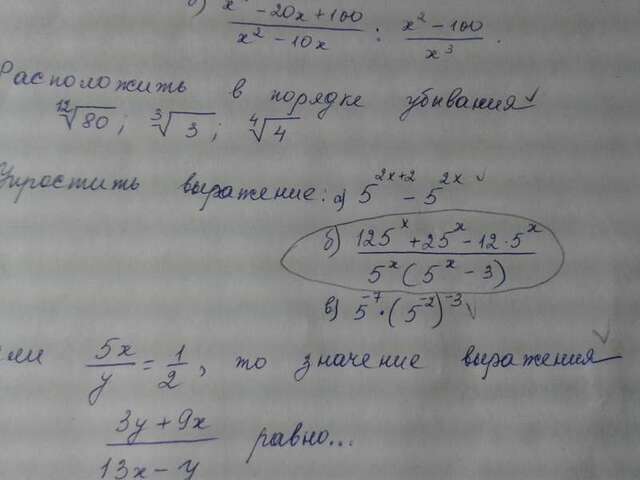 б) (x² - 20x + 100)/(x² - 10x) : (x² - 100)/x³.
Расположить в порядке убывания
¹²√80; ³√3; ⁴√4
Упростить выражение: а) 5^(2x+2) - 5^(2x)
б) (125^x + 25^x - 12·5^x)/(5^x(5^x - 3))
в) 5^(-7)·(5^(-2))^(-3)
5x/y = 1/2, то значение выражения
(3y + 9x)/(13x - y) равно...